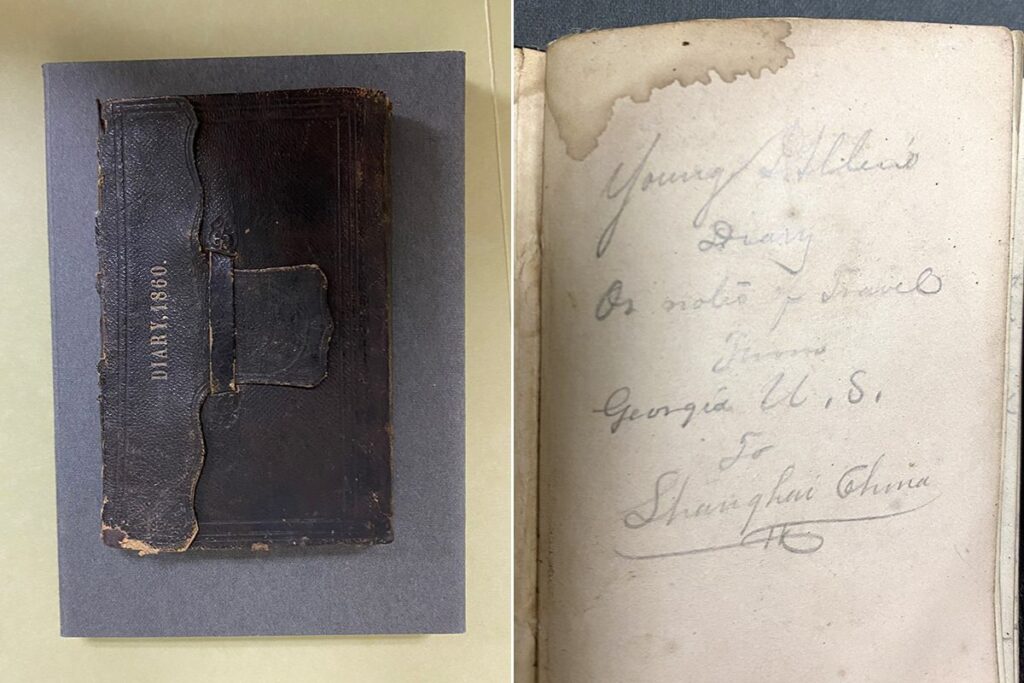 DIARY, 1860.
Young J. Allen's
Diary
Or notes of Travel
From
Georgia U. S.
To
Shanghai China